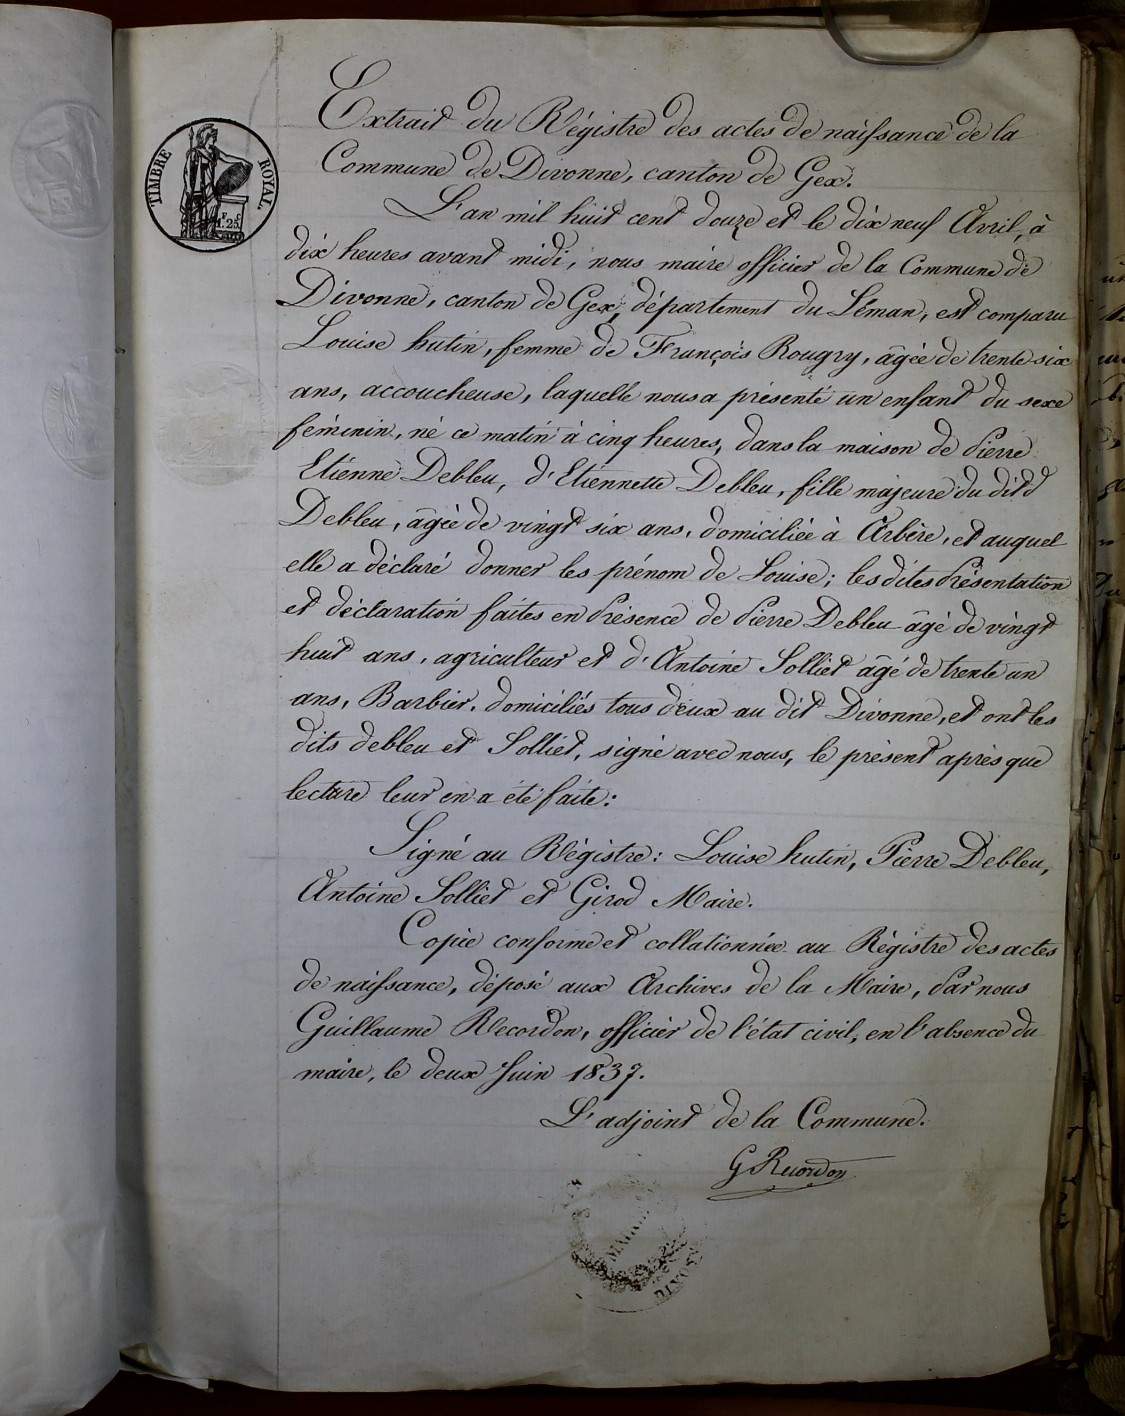 TIMBRE ROYAL.
1F 25c
Extrait du Régistre des actes de naissance de la
Commune de Divonne, canton de Gex.
L'an mil huit cent douze et le dix neuf Avril, à
dix heures avant midi, nous maire officier de la Commune de
Divonne, canton de Gex, département du Léman, est comparu
Louise hutin, femme de François Rougry, âgée de trente six
ans, accoucheuse, laquelle nous a présenté un enfant du sexe
féminin, né ce matin à cinq heures, dans la maison de Pierre
Etienne Debleu, d'Etiennette Debleu, fille majeure du dit
Debleu, âgée de vingt six ans, domiciliée à Arbère, et auquel
elle a déclaré donner les prénom de Louise; les dites Présentation
et déclaration faites en Présence de Pierre Debleu âgé de vingt
huit ans, agriculteur et d'Antoine Solliet âgé de trente un
ans, Barbier, domiciliés tous deux au dit Divonne, et ont les
dits debleu et Solliet, signé avec nous, le présent après que
lecture leur en a été faite:
Signé au Régistre: Louise hutin, Pierre Debleu,
Antoine Solliet et Girod Maire.
Copie conforme et collationnée au Régistre des actes
de naissance, déposé aux Archives de la Maire, Par nous
Guillaume Recordon, officier de l'état civil, en l'absence du
maire, le deux Juin 1837.
L'adjoint de la Commune.
G Recordon